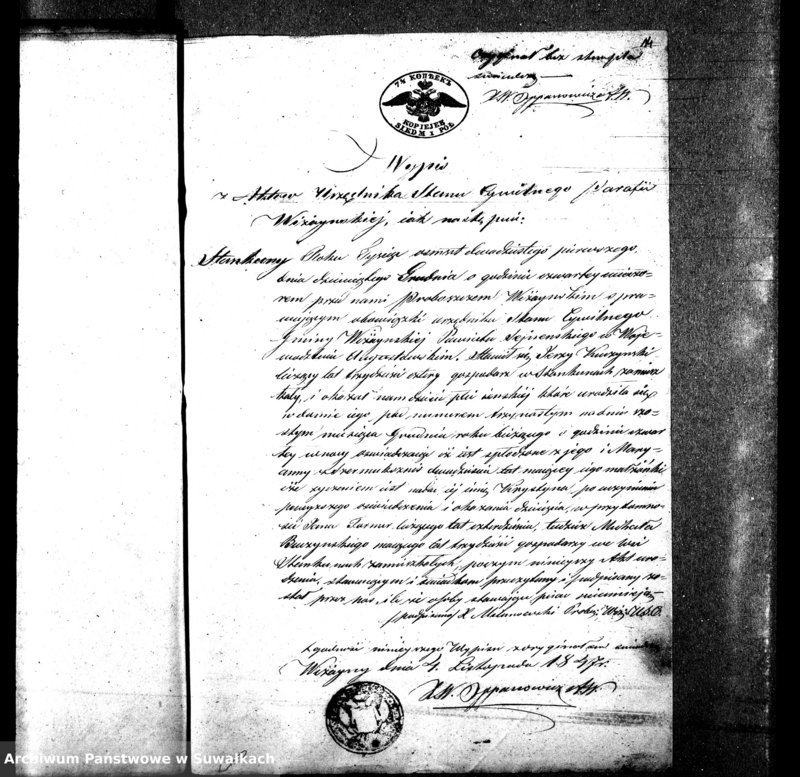 Oryginał bez stempla
X.W. Oppanowicz
7½ КОПѢЕКЪ
KOPIEJEK
SIEDM I PÓŁ
Wypis
z Aktów Urzędnika Stanu Cywilnego Parafii
Wiżaynskiej, iak następuie:
Stankuny Roku Tysiąc osmset dwudziestego pierwszego,
dnia dziewiątego Grudnia o godzinie czwartey wieczo-
rem przed nami Proboszczem Wiżaynskim spra-
wuiącym obowiązki urzędnika Stanu Cywilnego
Gminy Wiżaynskiej Powiatu Seynenskiego w Woje-
wodztwie Augustowskim, stawił się Jerzy Buczynski
liczący lat trzydzieści cztery gospodarz w Stankunach zamiesz
kały, i okazał nam dziecie płci żenskiej które urodziło się
w domie iego pod numerem trzynastym na dniu szo-
stym miesiąca Grudnia roku bieżącego o godzinie czwar
tey w nocy oswiadczaiąc iż iest spłodzone z jego i Mary-
anny dwadziescia lat maiącey iego małżonki
iże życzeniem iest nadac iej imie Krystyna, po uczynieniu
powyższego oświadczenia i okazania dziecięcia, w przytomno-
sci Jana liczącego lat czterdziescia, tudzież Michała
Buczynskiego maiącego lat trzydziesci gospodarzy we wsi
Stankunach zamieszkałych, poczym ninieyszy Akt uro-
dzenia, stawaiącym i świadkom przeczytany i podpisany zo-
stał przez nas, ile że osoby stawaiące pisac nieumieią
podpisany X Malinowski Prob: Wiż: U.S.C.
Zgodność ninieyszego Wypisu z oryginałem
Wiżayny dnia 4. Listopada 1847 r.
X.W. Oppanowicz
Archiwum Państwowe w Suwałkach